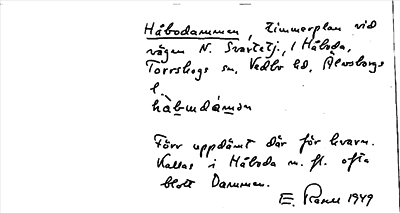 Håbodammen, timmerplan vid
vägen N. Svartetj., i Håboda,
Torrskogs sn, Vedbo hd, Älvsborgs
l.
hàbudámən
Förr uppdämt där för kvarn.
Kallas i Håboda m. fl. ofta
blott Dammen.
E. 1949